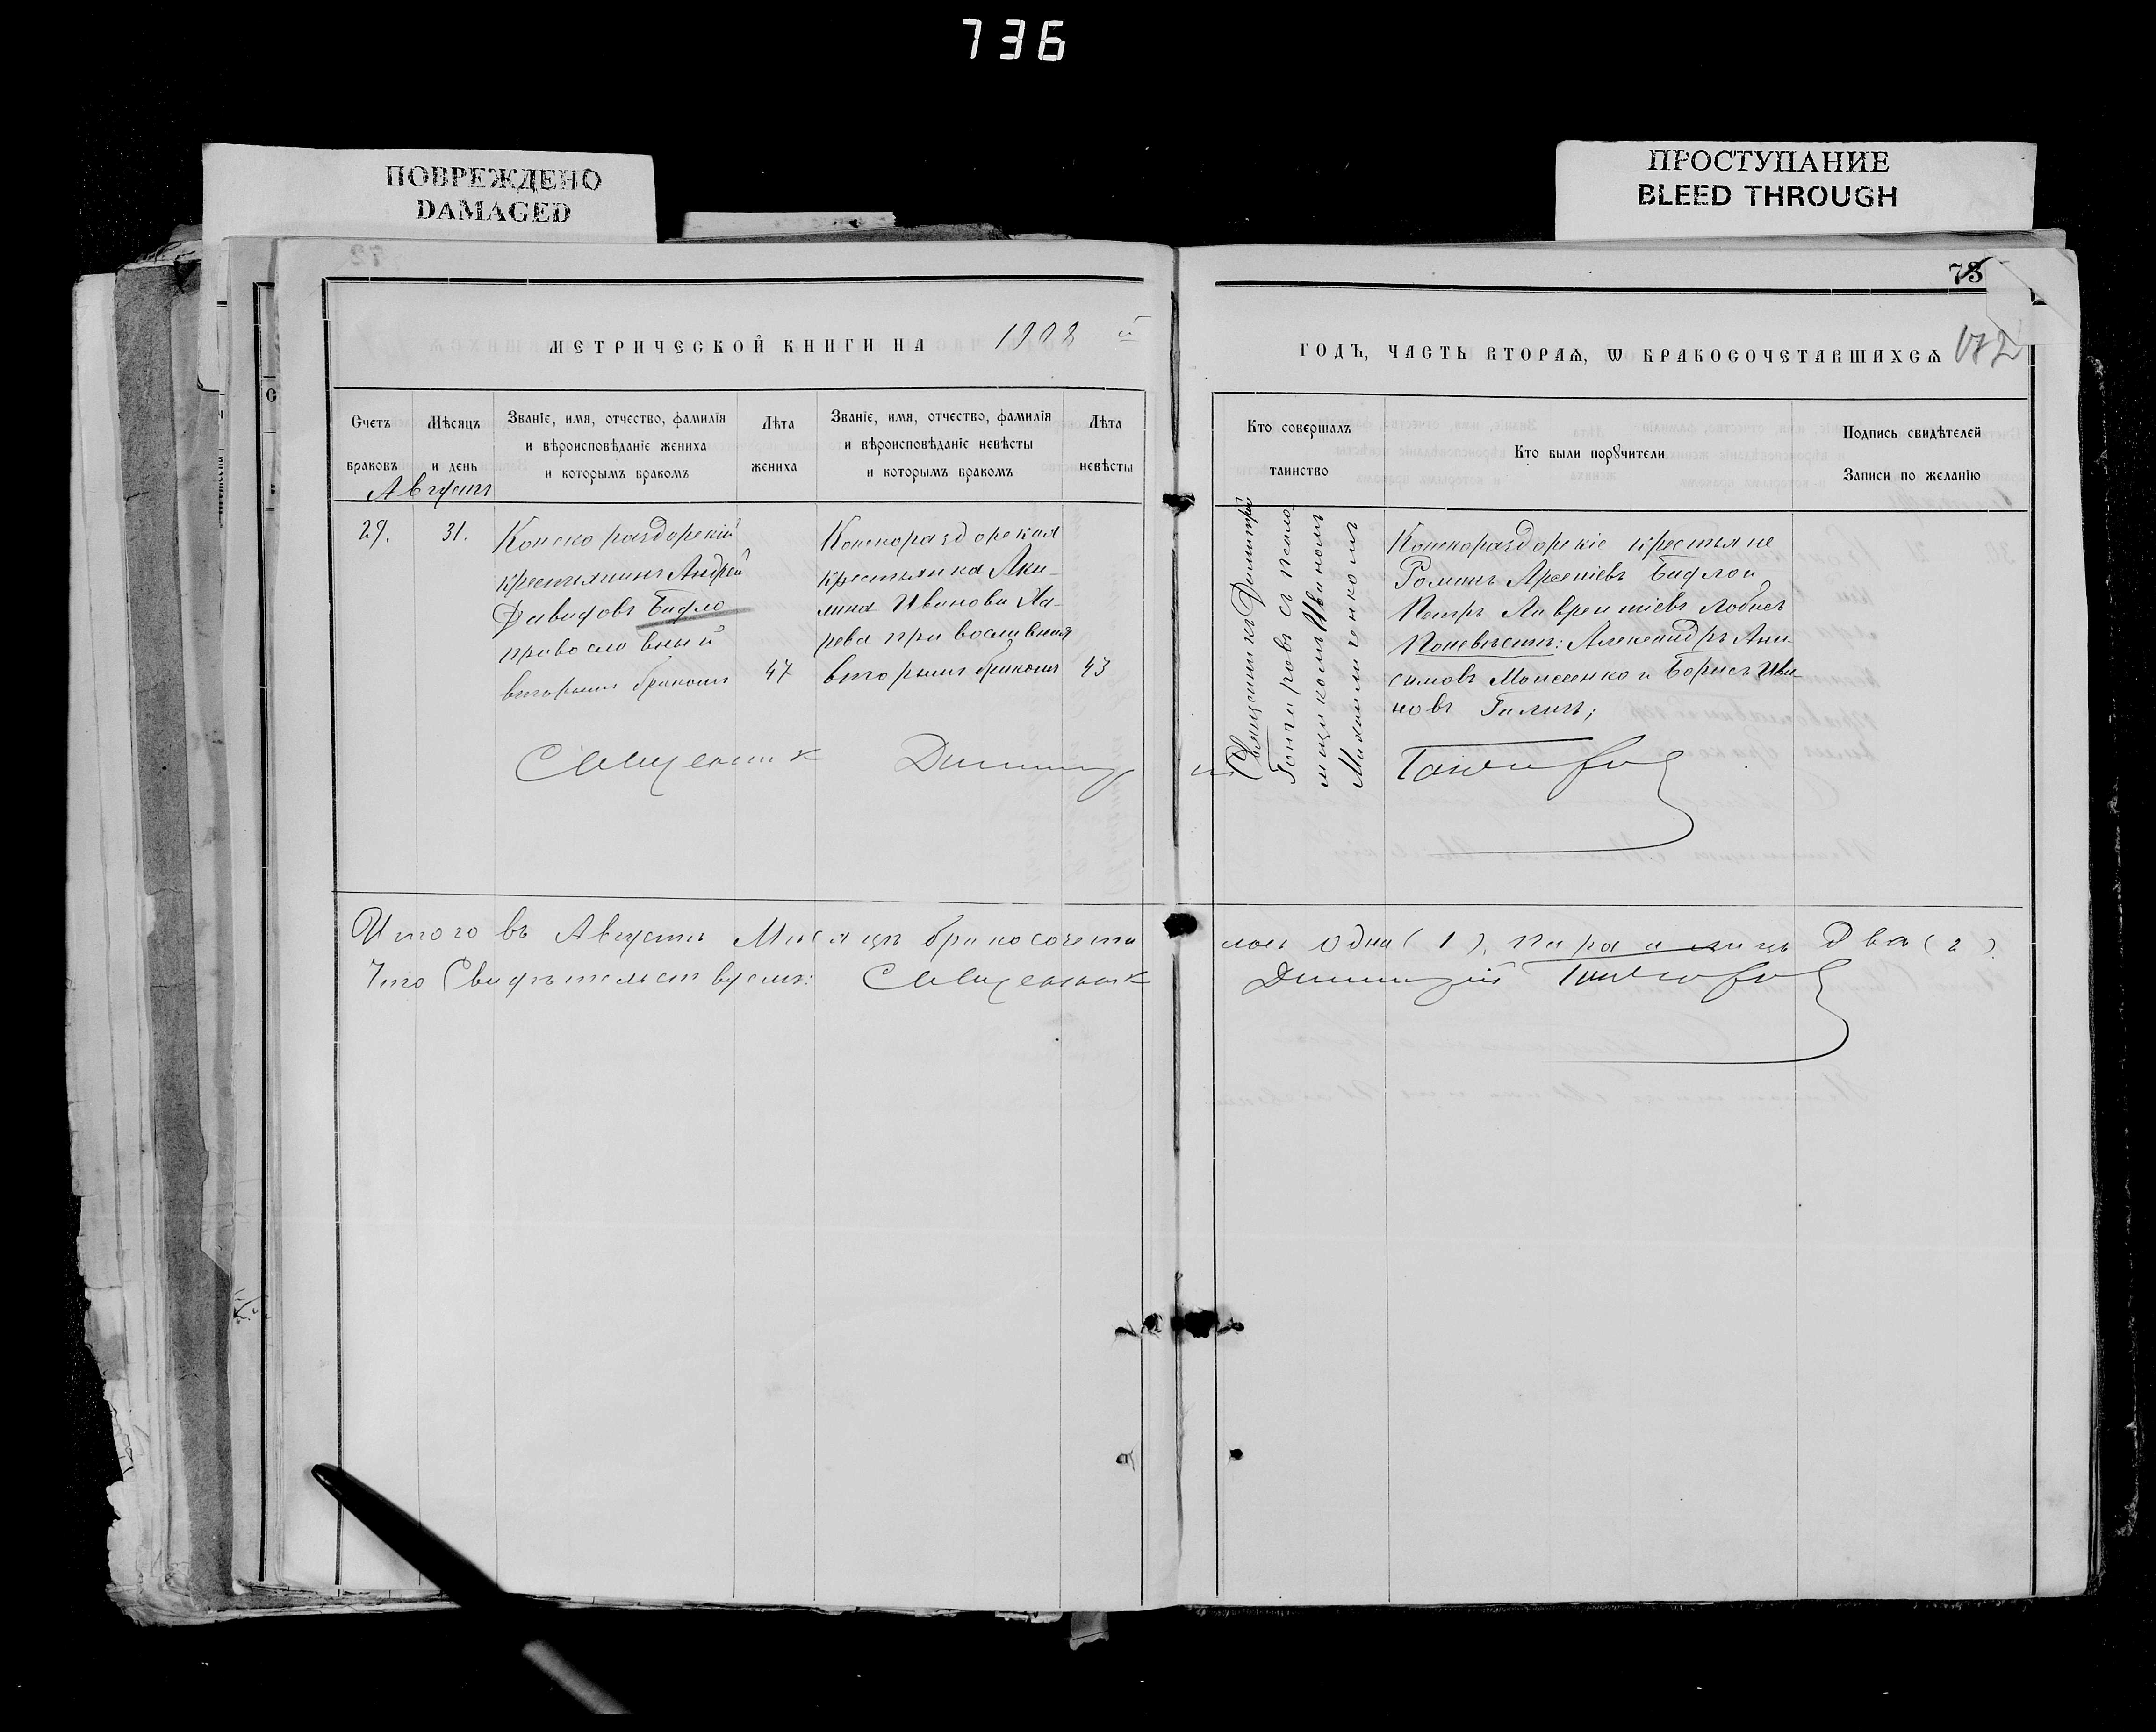 736
ПОВРЕЖДЕНО
DAMAGED
ПРОСТУПАНИЕ
BLEED THROUGH
73
МЕТРИЧЕСКОЙ КНИГИ НА 1908 й
ГОДЪ, ЧАСТЬ ВТОРАѦ, Ѡ БРАКОСОЧЕТАВШИХСѦ 172
Счетъ браковъ
Мѣсяцъ и день
Званіе, имя, отчество, фамилія и вѣроисповѣданіе жениха и которымъ бракомъ
Лѣта жениха
Званіе, имя, отчество, фамилія и вѣроисповѣданіе невѣсты и которымъ бракомъ
Лѣта невѣсты
Кто совершалъ таинство
Кто были порꙋчители
Подпись свидѣтелей Записи по желанію
Августъ
29.
31.
Конскораздорскій
крестьянинъ Андрей
Давидовъ Бадло
православный
вторымъ бракомъ
47
Конскораздорская
крестьянка Аки-
лина Иванова Ла-
рева православная
вторымъ бракомъ
43
Священникъ Димитрій
Гончаровъ съ псало
мщикомъ Иваномъ
Конскораздорскіе крестьяне
Романъ Арсеніевъ Бадло и
Петръ Лаврентіевъ Лобасъ
По невѣстѣ: Александръ Ани-
симовъ Моисеенко и Борисъ Ива-
новъ Галичъ;
Священник Димитрій Гончаров
Итого въ Августѣ Мѣсяцѣ бракосочета
лось одна (1), пара а лицъ два (2).
Что Свидѣтельствуемъ: Священник
Димитрій Гончаров